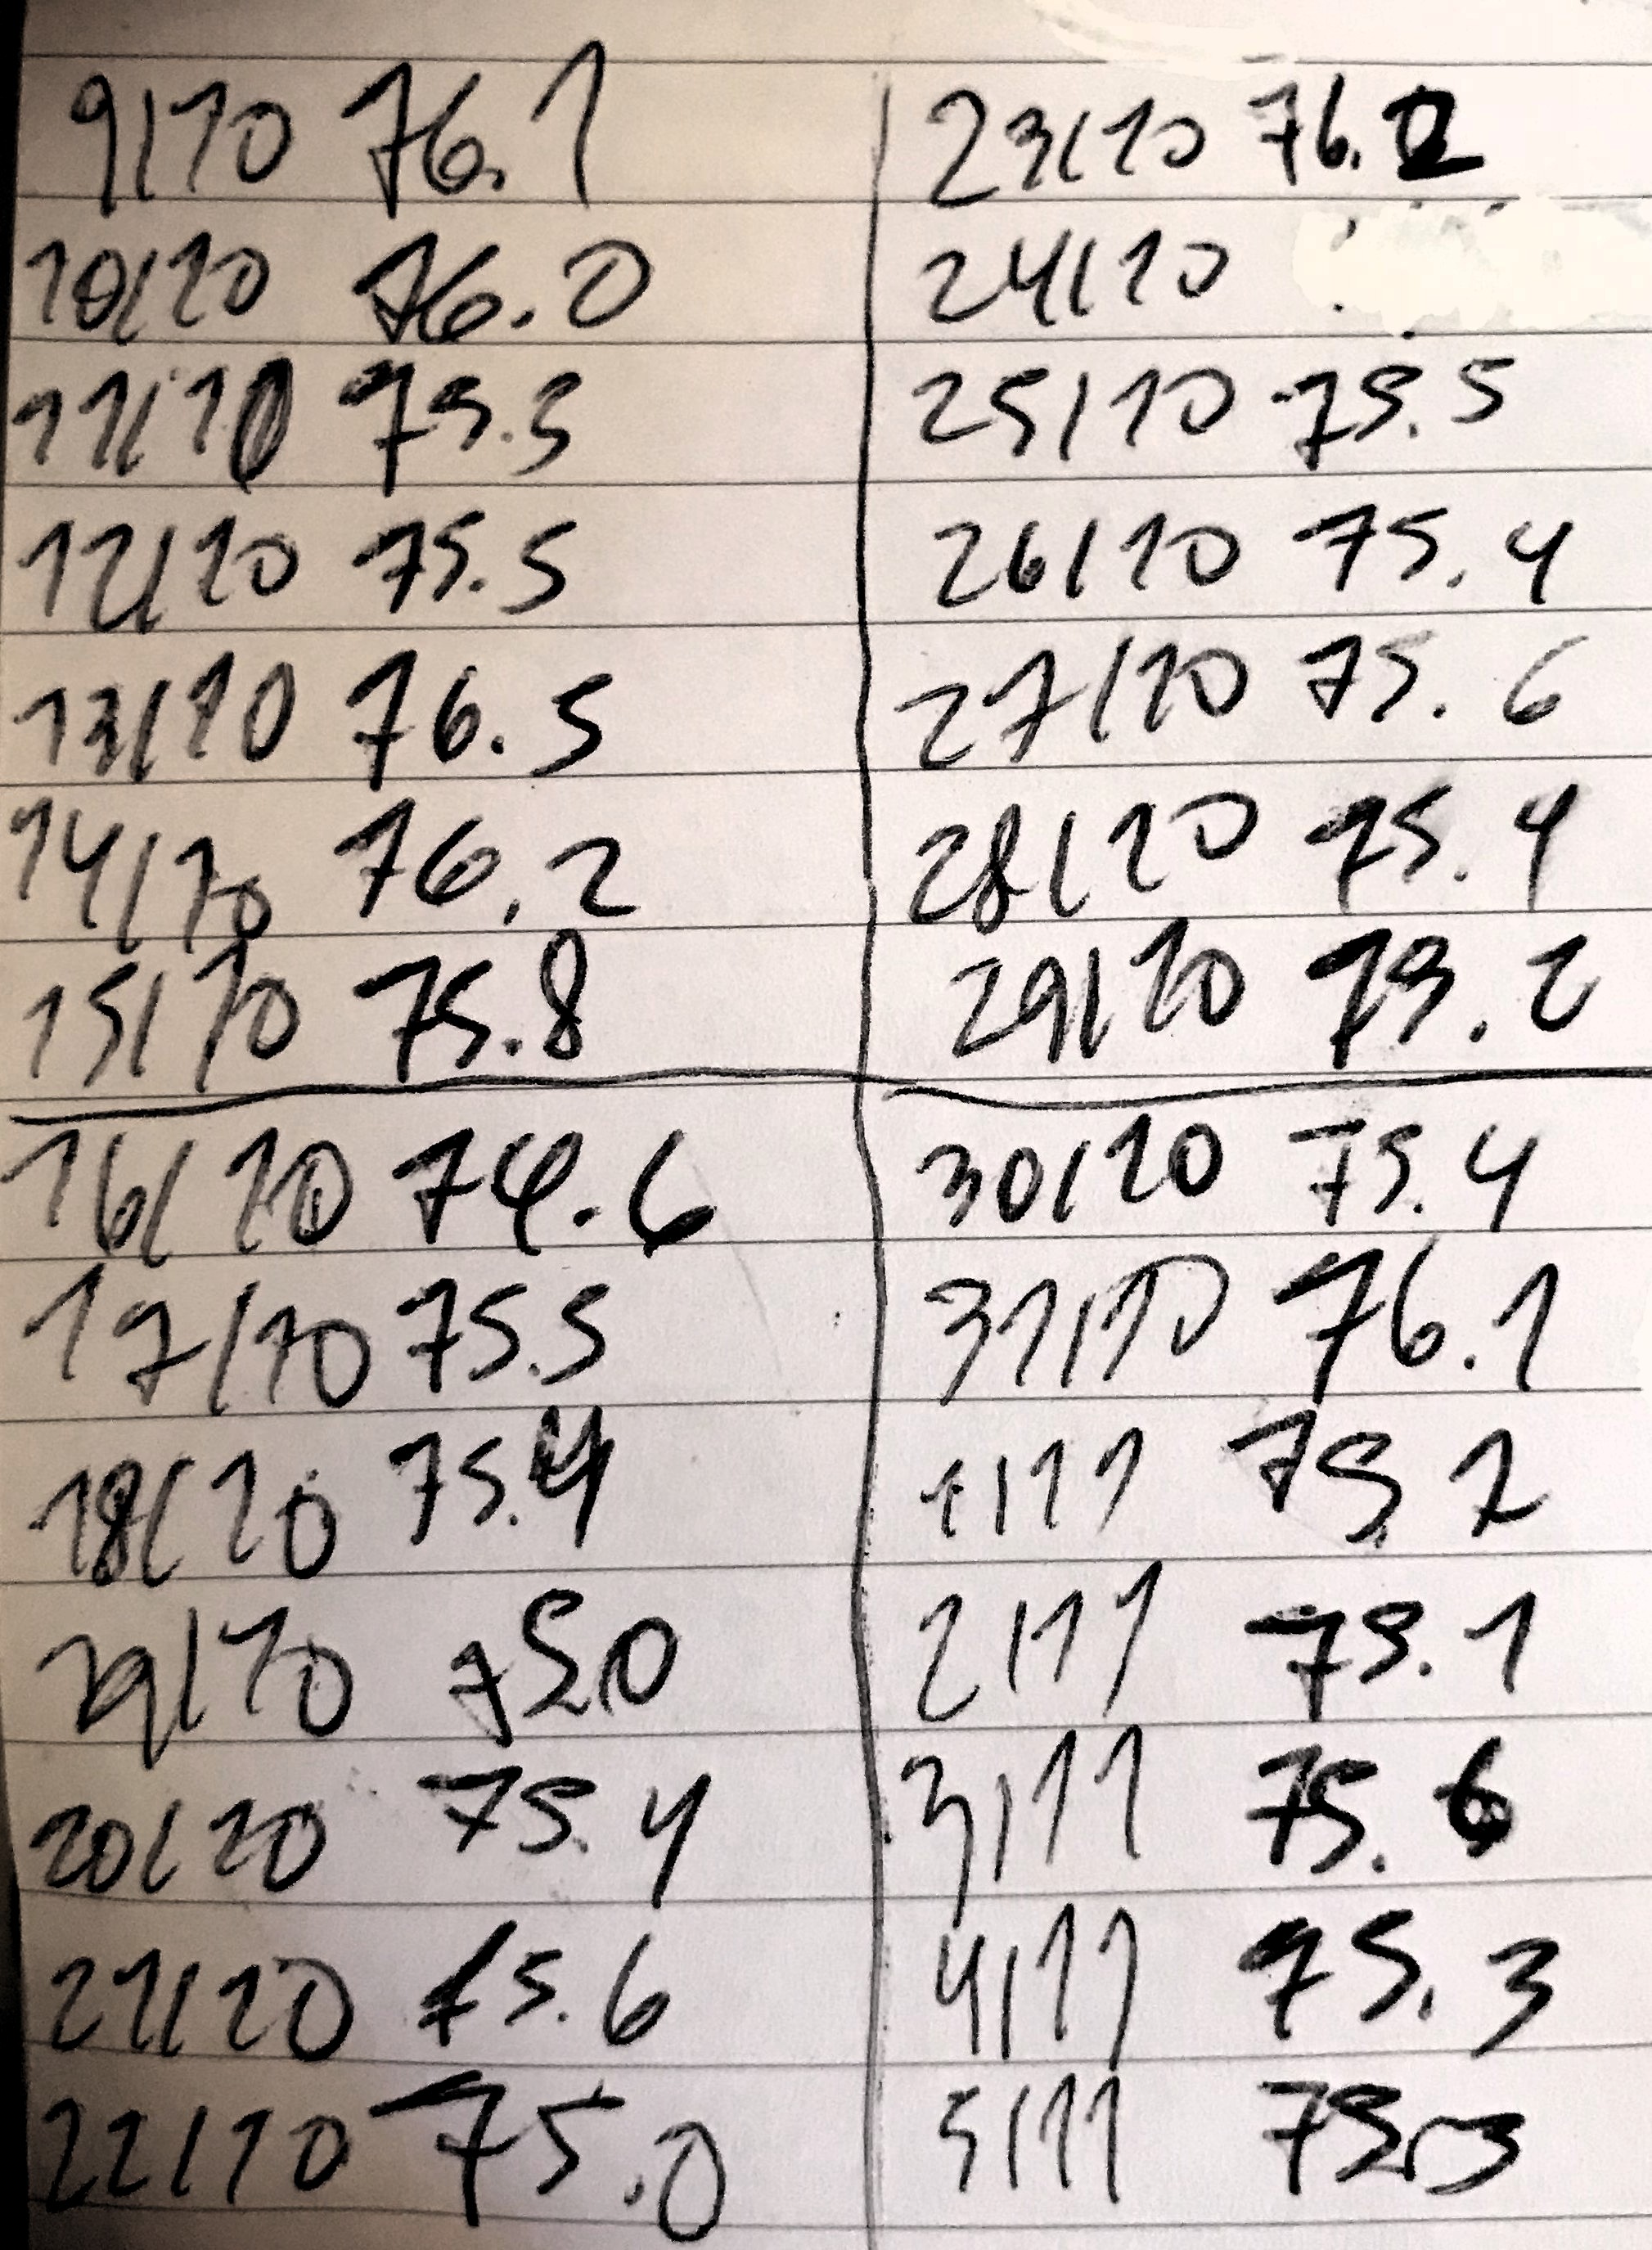 9/10 76.1
10/10 76.0
11/10 75.5
12/10 75.5
13/10 76.5
14/10 76.2
15/10 75.8
16/10 74.6
17/10 75.5
18/10 75.4
19/10 75.0
20/10 75.4
21/10 75.6
22/10 75.0
23/10 76.2
24/10
25/10 75.5
26/10 75.4
27/10 75.6
28/10 75.4
29/10 75.2
30/10 75.4
31/10 76.1
1/11 75.2
2/11 75.1
3/11 75.6
4/11 75.3
5/11 75.3